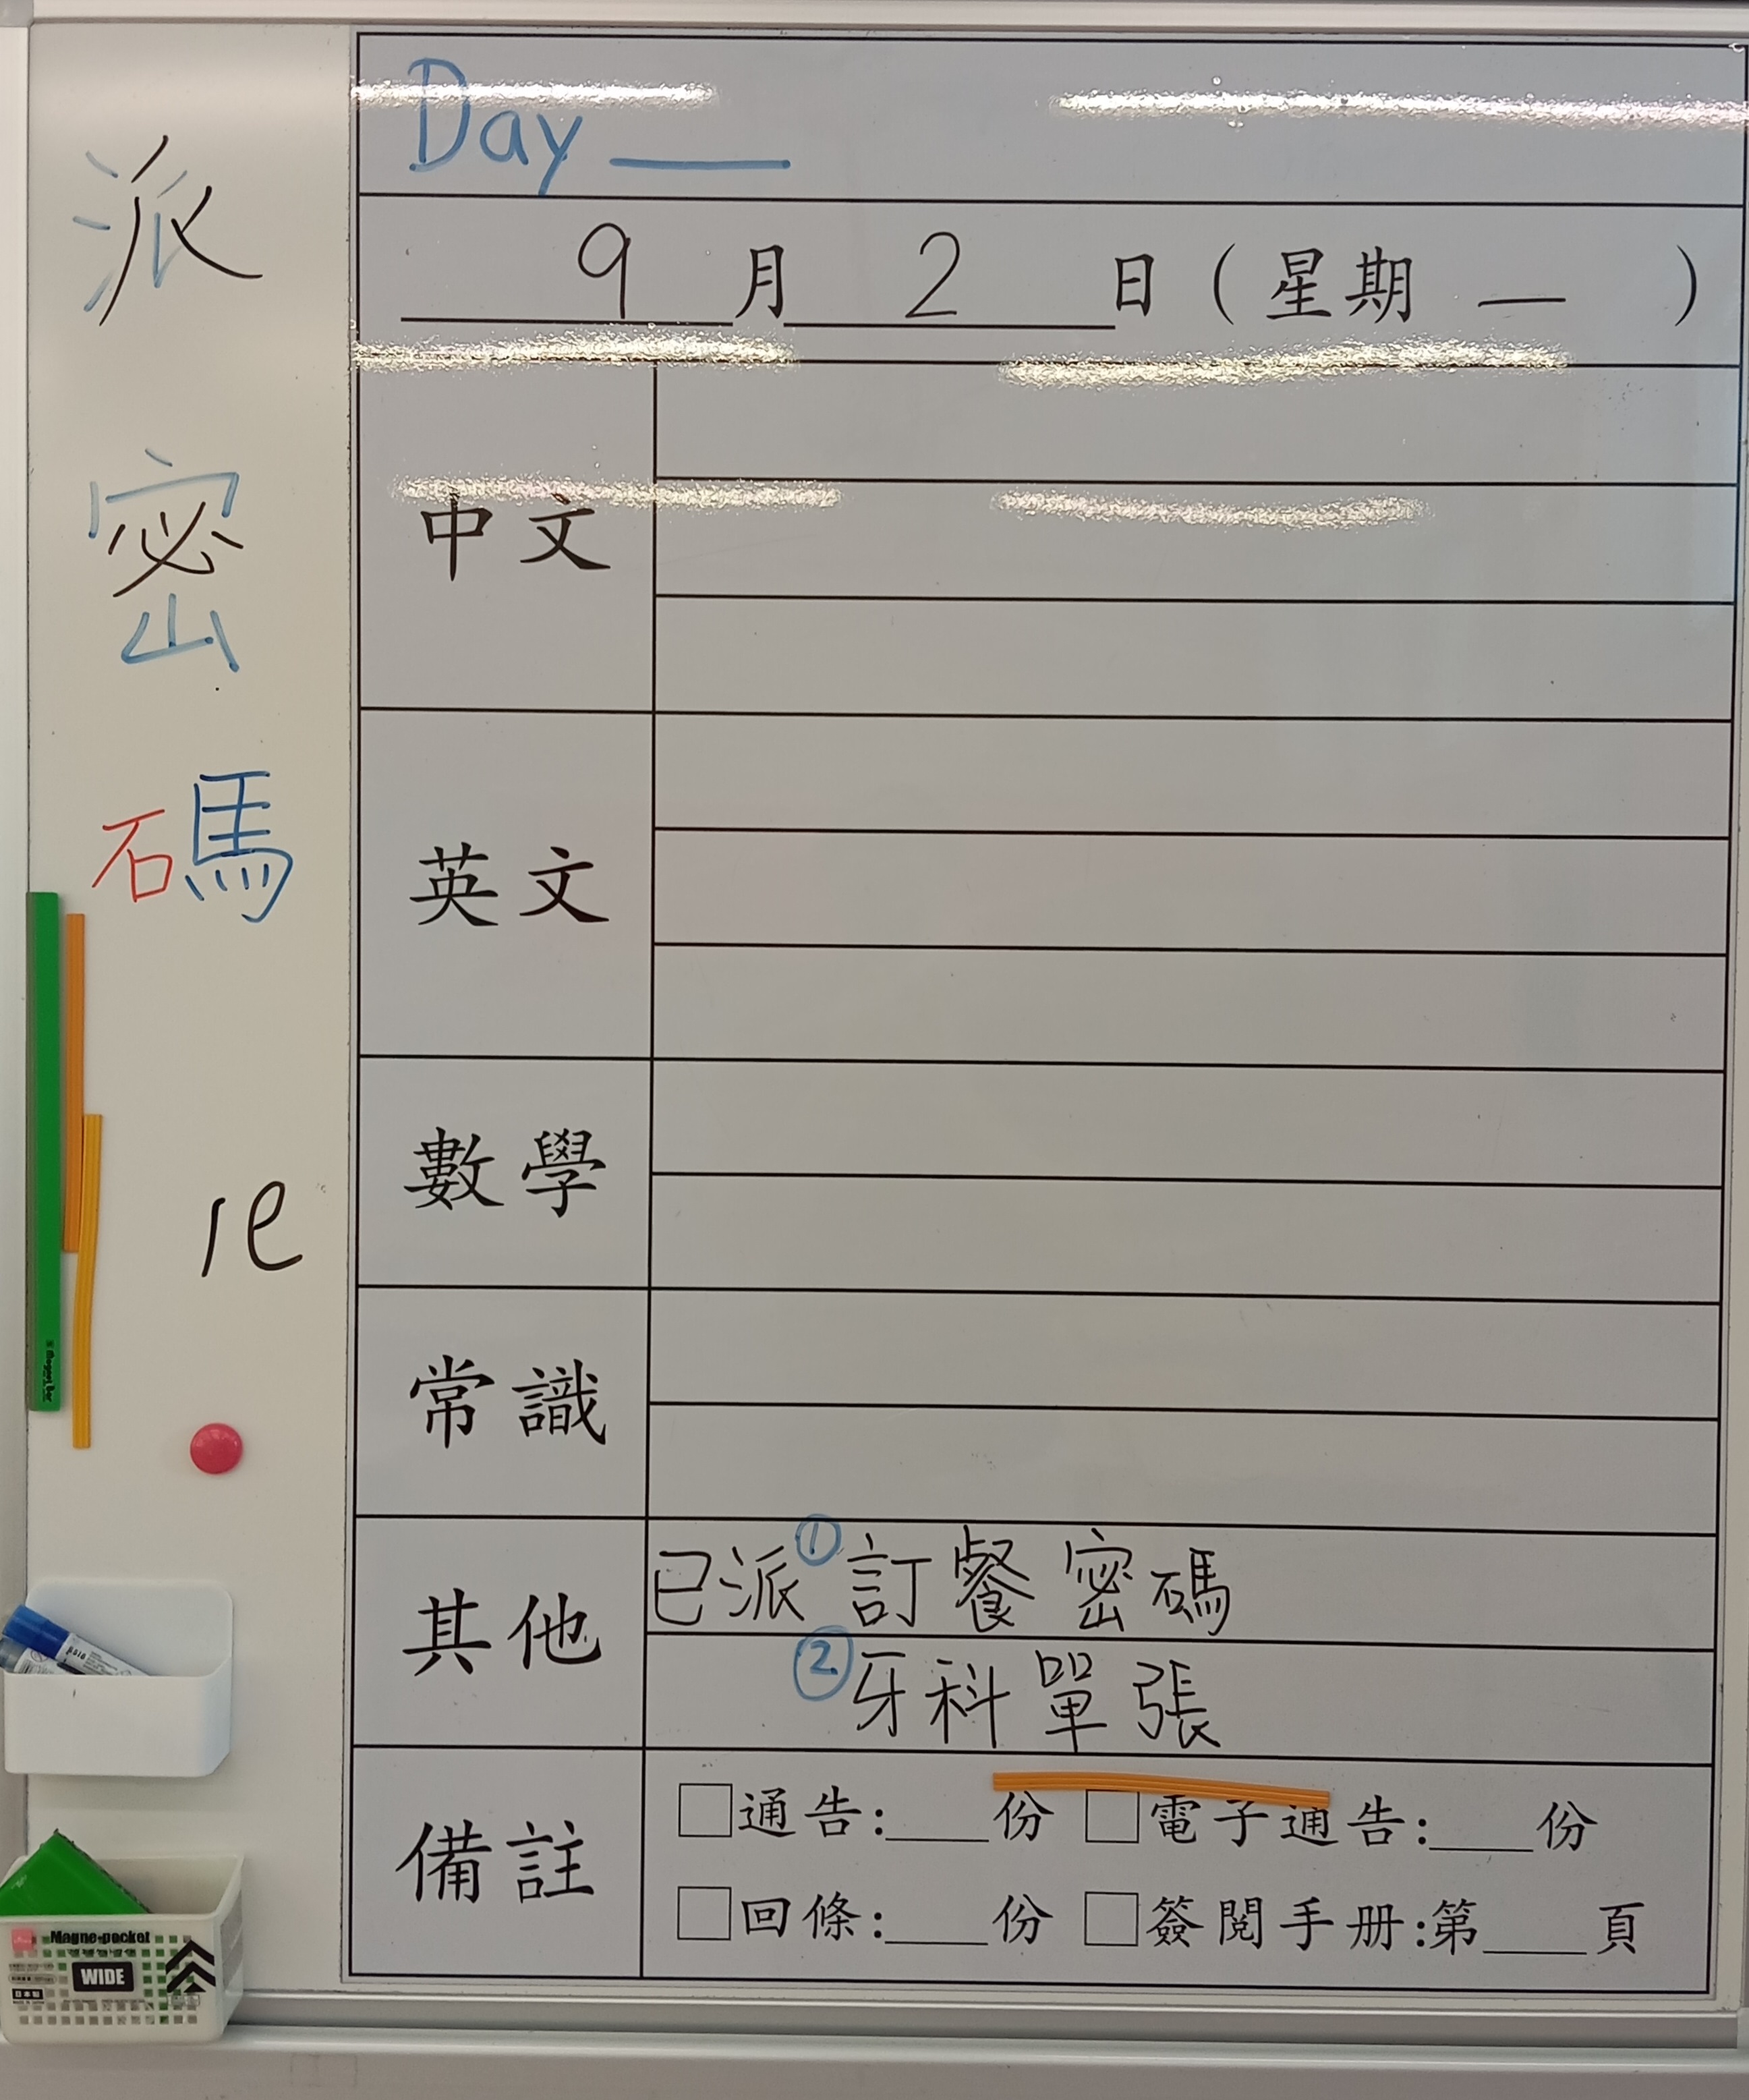 派
密
碼
1e
Day ___
9月2日（星期一）
中文
英文
數學
常識
其他
已派①訂餐密碼
②牙科單張
備註
□通告:___份 □電子通告:___份
□回條:___份 □簽閱手册:第___頁
Magne-pocket
WIDE
日本製